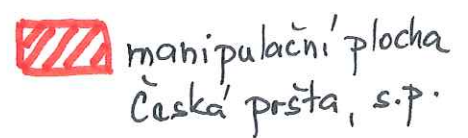 manipulační plocha
Česká pršta, s.p.